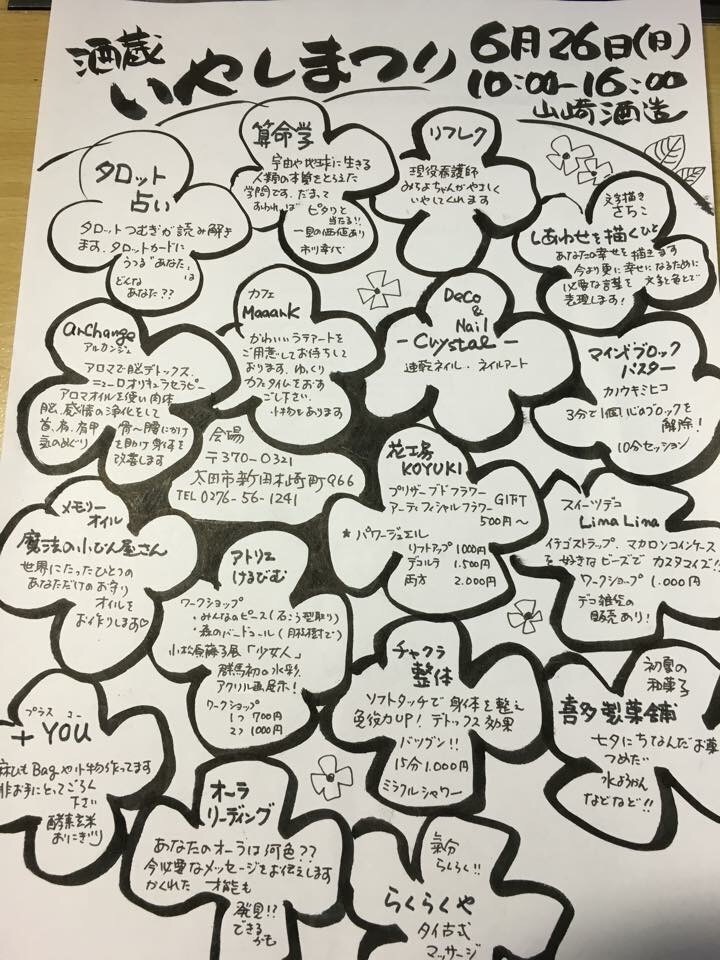 酒蔵
いやしまつり
6月26日(日)
10:00-16:00
山崎酒造
タロット
占い
タロットつむぎが読み解き
ます。タロットカードに
うつる"あなた"は
どんな
あなた??
算命学
宇宙や地球に生きる
人類の本質をとらえた
学問です。だまって
すわれば ピタリと
当たる!!
一見の価値あり
市川幸代
リフレク
現役看護師
みちよちゃんがやさしく
いやしてくれます
文字描き
さちこ
しあわせを描くひと
あなたの幸せを描きます
今より更に幸せになるために
必要な言葉を文字と色とで
表現します!
archange
アルカンジュ
アロマで脳デトックス.
ニューロオリキュラセラピー
アロマオイルを使い肉体
脳、感情の浄化をして
首、肩、肩甲骨〜腰にかけ
気のめぐりを助け身体を
改善します
カフェ
Maaank
かわいいラテアートを
ご用意してお待ちして
おります。ゆっくり
カフェタイムをおす
ごし下さい.
小物もあります
Deco
&
Nail
-Crystal-
速乾ネイル・ネイルアート
マインドブロック
バスター
カノウキミヒコ
3分で1個、心のブロックを
解除!
10分セッション
会場
〒370-0321
太田市新田木崎町966
TEL 0276-56-1241
花工房
KOYUKI
プリザーブドフラワー
アーティフィシャルフラワー
GIFT
500円〜
★パワージュエル
リフトアップ 1000円
デコルテ 1.500円
両方 2.000円
スイーツデコ
Lima Lina
イチゴストラップ、マカロンコインケース
を好きなビーズでカスタマイズ!!
ワークショップ 1.000円
デコ雑貨の
販売あり!
メモリー
オイル
魔法の小びん屋さん
世界にたったひとつの
あなただけのお守り
オイルを
お作りします♡
アトリエ
けるびむ
ワークショップ
・みんなのピース(石こう型取り)
・森のバードコール(月桂樹で)
小松原藤子展「少女人」
群馬初の水彩.
アクリル画展示!
ワークショップ
1つ 700円
2つ 1000円
チャクラ
整体
ソフトタッチで身体を整え
免疫力UP! デトックス効果
バツグン!!
15分1.000円
ミラクルシャワー
初夏の
和菓子
喜多製菓舗
七夕にちなんだお菓
つめた
水ようかん
などなど!!
プラス ユー
+ YOU
麻ひもBagや小物作ってます
非お手にとってごらく
下さい
酵素玄米
おにぎり
オーラ
リーディング
あなたのオーラは何色??
今必要なメッセージをお伝えします
かくれた才能も
発見!?
できる
かも
氣分
らくらく!!
らくらくや
タイ古式
マッサージ